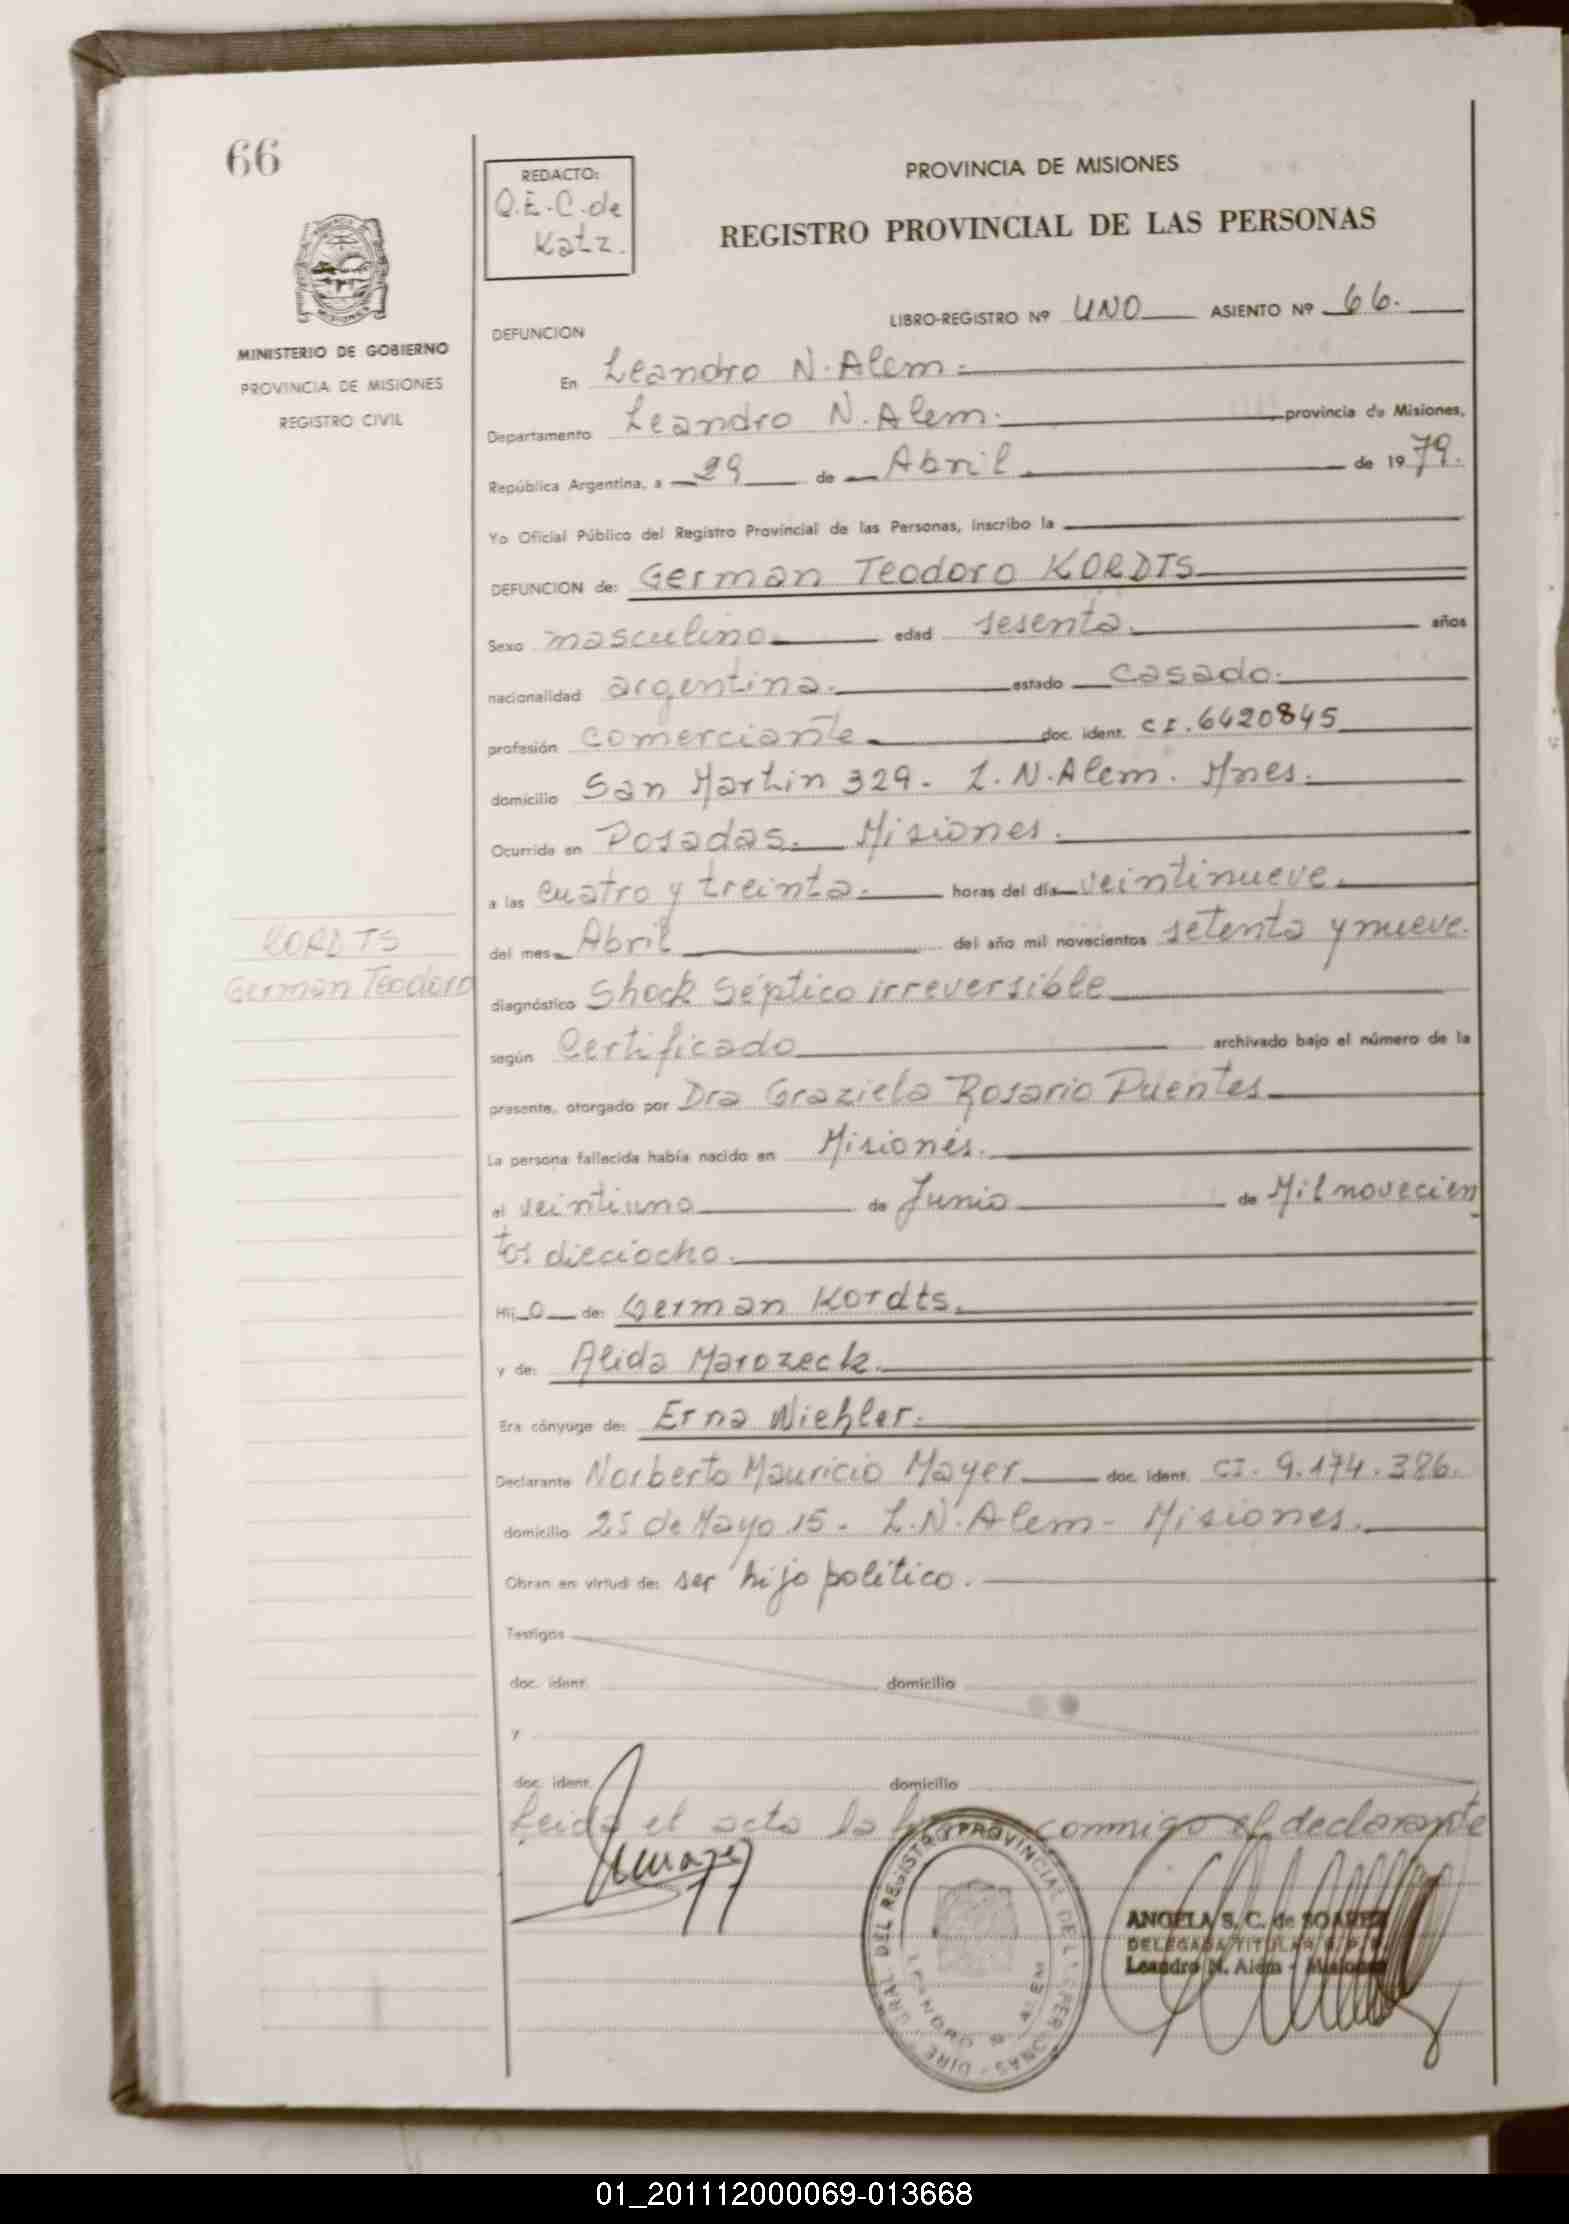 66
REDACTO:
O.E.C. de
Katz.
PROVINCIA DE MISIONES
REGISTRO PROVINCIAL DE LAS PERSONAS
MINISTERIO DE GOBIERNO
PROVINCIA DE MISIONES
REGISTRO CIVIL
LIBRO-REGISTRO Nº UNO ASIENTO Nº 66.
DEFUNCION
En Leandro N. Alem.
Departamento Leandro N. Alem. provincia de Misiones,
República Argentina, a 29 de Abril de 1979.
Yo Oficial Público del Registro Provincial de las Personas, inscribo la
DEFUNCION de: German Teodoro KORDTS
Sexo masculino edad sesenta. años
nacionalidad argentina. estado casado.
profesión comerciante doc. ident. CI. 6420845
domicilio San Martin 329. L.N. Alem. Mnes.
Ocurrida en Posadas. Misiones.
a las cuatro y treinta. horas del día veintinueve.
del mes Abril del año mil novecientos setenta y nueve.
KORDTS
German Teodoro
diagnóstico Shock Séptico irreversible
según Certificado archivado bajo el número de la
presente, otorgado por Dra Graziela Rosario Puentes
La persona fallecida había nacido en Misiones.
el veintiuno de Junio de Mil novecien
tos dieciocho.
Hijo de: German Kordts.
y de: Alida Marozeck.
Era cónyuge de: Erna Niehler.
Declarante Norberto Mauricio Mayer doc. ident. CI. 9.174.386.
domicilio 25 de Mayo 15. L.N. Alem - Misiones.
Obran en virtud de: ser hijo politico.
Testigos
doc. ident. domicilio
y
doc. ident. domicilio
Leida el acta la conmigo el declarante
REGISTRO PROVINCIAL DE LAS PERSONAS - DIRE GRAL. DEL
LEANDRO N. ALEM
ANGELA S. C. de SOAREZ
DELEGADA TITULAR R. P. P.
Leandro N. Alem - Misiones
01_201112000069-013668